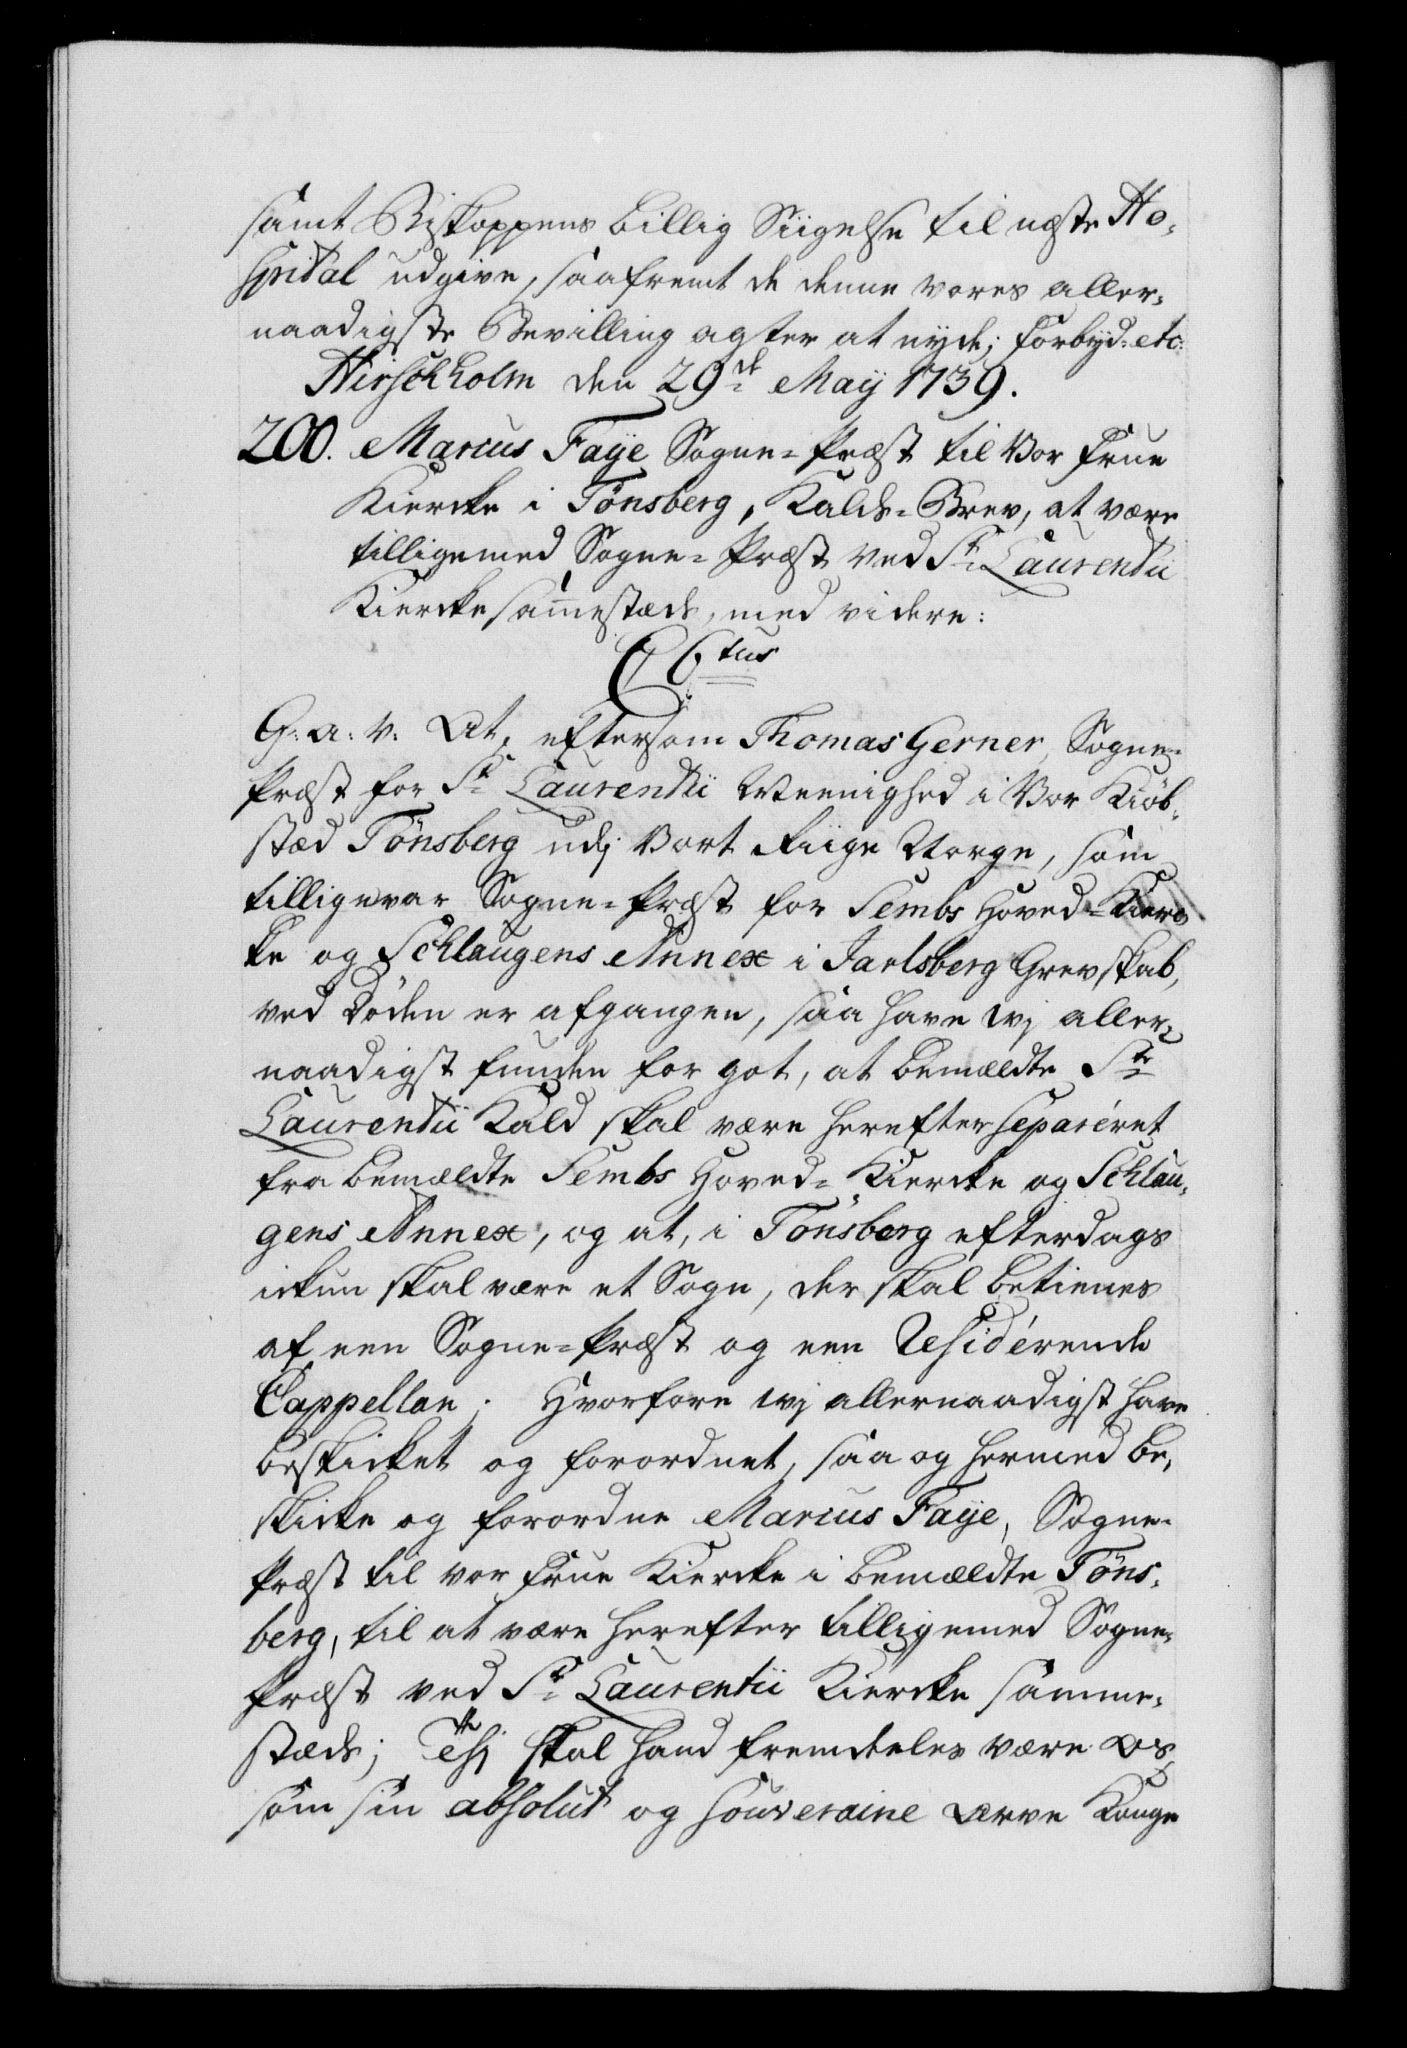 samt Biskoppens billig Siigelse til neste Ho-
spital udgive, saafremt de denne vores aller-
naadigste Bevilling agter at nyde; Forbyd: etc:
Hirschholm den 29de Maÿ 1739.
200. Marcus Faÿe Sogne-Præst til Vor Frue
Kiercke i Tönsberg, Kalds-Brev, at være
tilligemed Sogne-Præst ved St. Laurentii
Kiercke sam̅estæds, med videre:
C 6tus
G: a: v: At, eftersom Thomas Gerner, Sogne-
Præst for St. Laurentii Meenighed i Vor Kiöb-
stæd Tönsberg udj Vort Riige Norge, som
tillige var Sogne-Præst for Sembs Hoved-Kierc-
ke og Schlaugens Annex i Jarlsberg Grevskab,
ved Döden er afgangen, saa have Wj aller-
naadigst funden for got, at bemældte Ste
Laurentii Kald skal være herefter separéret
fra bemældte Sembs Hoved-Kiercke og Schlau-
gens Annex, og at, i Tönsberg efterdags
ickun skal være et Sogn, der skal betienes
af een Sogne-Præst og een Residérende
Cappellan; Hvorfore Wj allernaadigst have
beskicket og forordnet, saa og hermed be-
skicke og forordne Marcus Faÿe, Sogne-
Præst til vor Frue Kiercke i bemældte Töns-
berg, til at være herefter tilligemed Sogne-
Præst ved St. Laurentii Kiercke samme-
stæds; Thj skal hand fremdeeles være Os,
som sin absolut og souveraine Arve Konge